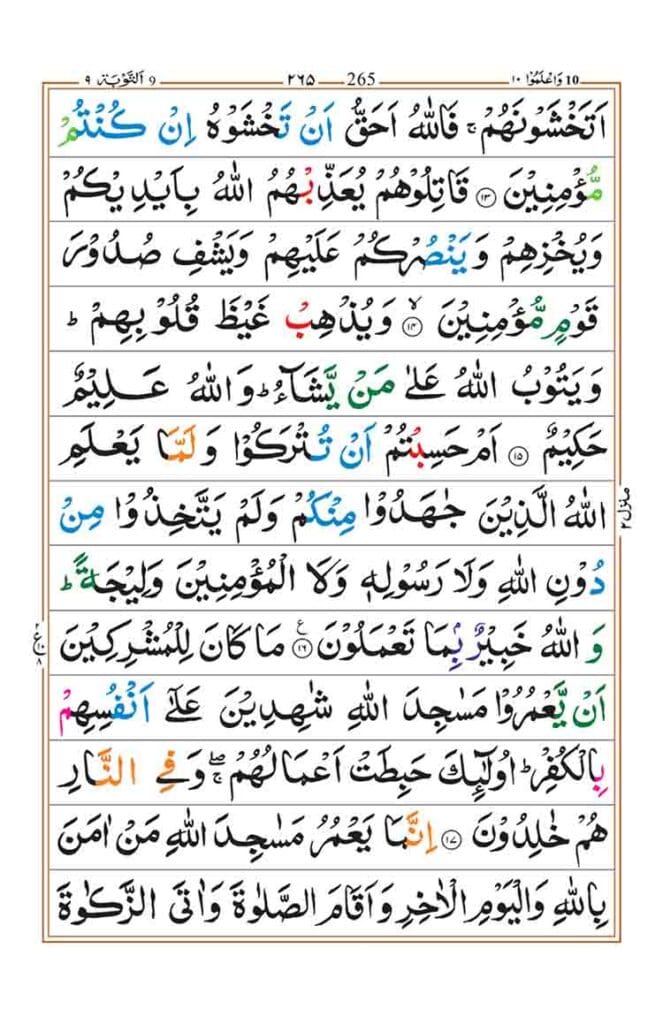 10 وَاعْلَمُوْا ١٠ 265 ٢٦٥ 9 اَلتَّوْبَة ٩
اَتَخْشَوْنَهُمْ ۚ فَاللّٰهُ اَحَقُّ اَنْ تَخْشَوْهُ اِنْ كُنْتُمْ
مُّؤْمِنِيْنَ ۝١٣ قَاتِلُوْهُمْ يُعَذِّبْهُمُ اللّٰهُ بِاَيْدِيْكُمْ
وَيُخْزِهِمْ وَيَنْصُرْكُمْ عَلَيْهِمْ وَيَشْفِ صُدُوْرَ
قَوْمٍ مُّؤْمِنِيْنَ ۙ۝١٤ وَيُذْهِبْ غَيْظَ قُلُوْبِهِمْ ؕ
وَيَتُوْبُ اللّٰهُ عَلٰى مَنْ يَّشَآءُ ؕ وَاللّٰهُ عَلِيْمٌ
حَكِيْمٌ ۝١٥ اَمْ حَسِبْتُمْ اَنْ تُتْرَكُوْا وَلَمَّا يَعْلَمِ
اللّٰهُ الَّذِيْنَ جٰهَدُوْا مِنْكُمْ وَلَمْ يَتَّخِذُوْا مِنْ
دُوْنِ اللّٰهِ وَلَا رَسُوْلِهٖ وَلَا الْمُؤْمِنِيْنَ وَلِيْجَةً ؕ
وَاللّٰهُ خَبِيْرٌۢ بِمَا تَعْمَلُوْنَ ۝١٦ ع مَا كَانَ لِلْمُشْرِكِيْنَ
اَنْ يَّعْمُرُوْا مَسٰجِدَ اللّٰهِ شٰهِدِيْنَ عَلٰۤى اَنْفُسِهِمْ
بِالْكُفْرِ ؕ اُولٰٓئِكَ حَبِطَتْ اَعْمَالُهُمْ ۖۚ وَفِي النَّارِ
هُمْ خٰلِدُوْنَ ۝١٧ اِنَّمَا يَعْمُرُ مَسٰجِدَ اللّٰهِ مَنْ اٰمَنَ
بِاللّٰهِ وَالْيَوْمِ الْاٰخِرِ وَاَقَامَ الصَّلٰوةَ وَاٰتَى الزَّكٰوةَ
منزل ٢